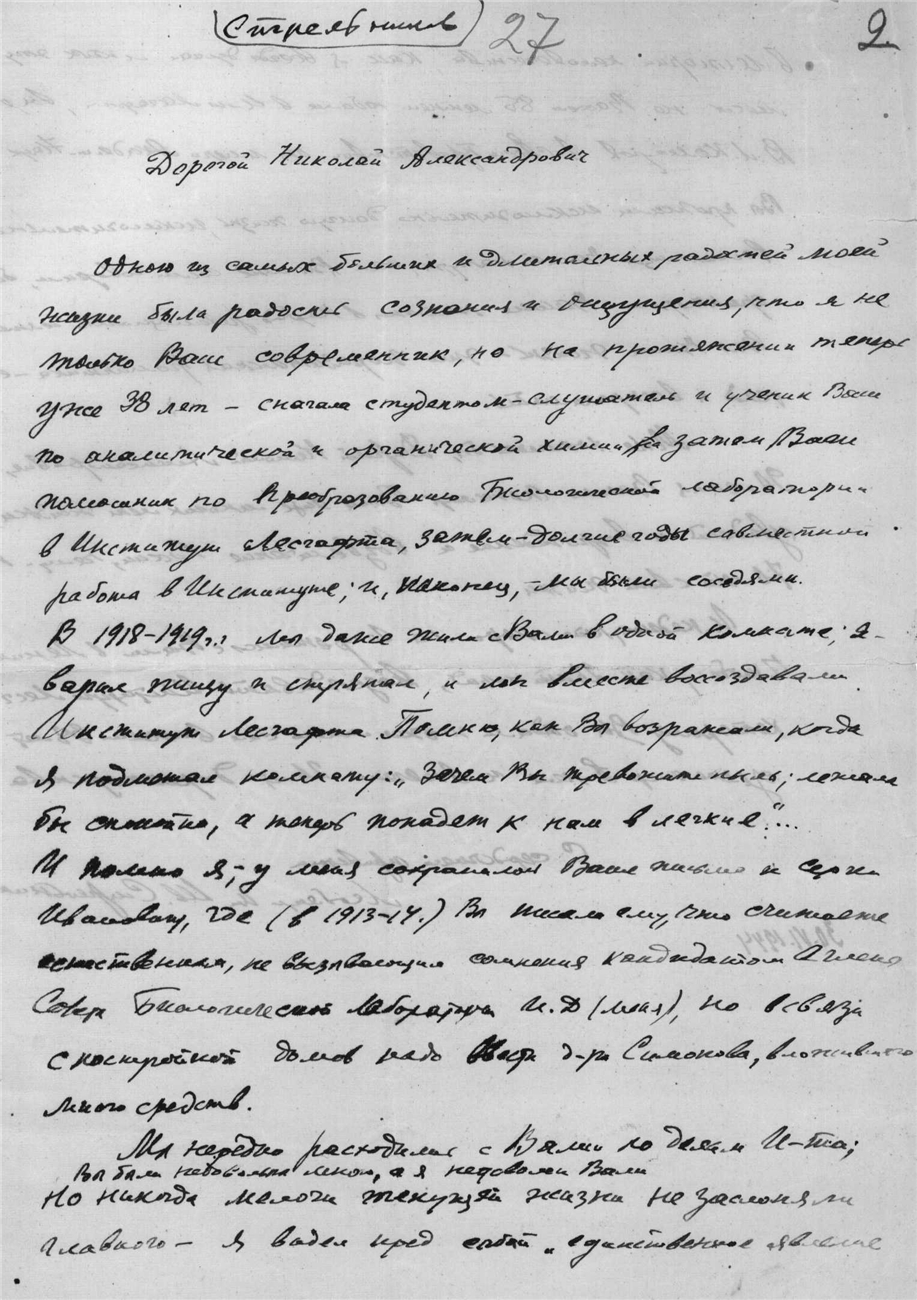 Стрельников 27 2
Дорогой Николай Александрович
Одною из самых больших и длительных радостей моей
жизни была радость сознания и ощущения, что я не
только Ваш современник, но на протяжении теперь
уже 38 лет – сначала студентом-слушатель и ученик Ваш
по аналитической и органической химии, а затем Ваш
помощник по преобразованию Биологической лаборатории
в Институт Лесгафта, затем – долгие годы совместной
работы в Институте; и, наконец, – мы были соседями.
В 1918–1919 г.г. мы даже жили с Вами в одной комнате; я
варил пищу и стряпал, и мы вместе воссоздавали
Институт Лесгафта. Помню, как Вы возражали, когда
я подметал комнату: „Зачем Вы тревожите пыль; лежала
бы спокойно, а теперь попадет к нам в легкие“...
И помню я, – у меня сохранилось Ваше письмо к Сергею
Ивановичу, где (в 1913–14.) Вы писали ему, что считаете
естественным, не вызывающим сомнения кандидатом в члены
Совета Биологической Лаборатории И.Д (меня), но в связи
с постройкой домов надо д-ра Симонова, вложившего
много средств.
Мы нередко расходились с Вами по делам И-та;
Вы были недовольны мною, а я недоволен Вами
но никогда мелочи текущей жизни не заслоняли
главного – я видел пред собой „единственное явление